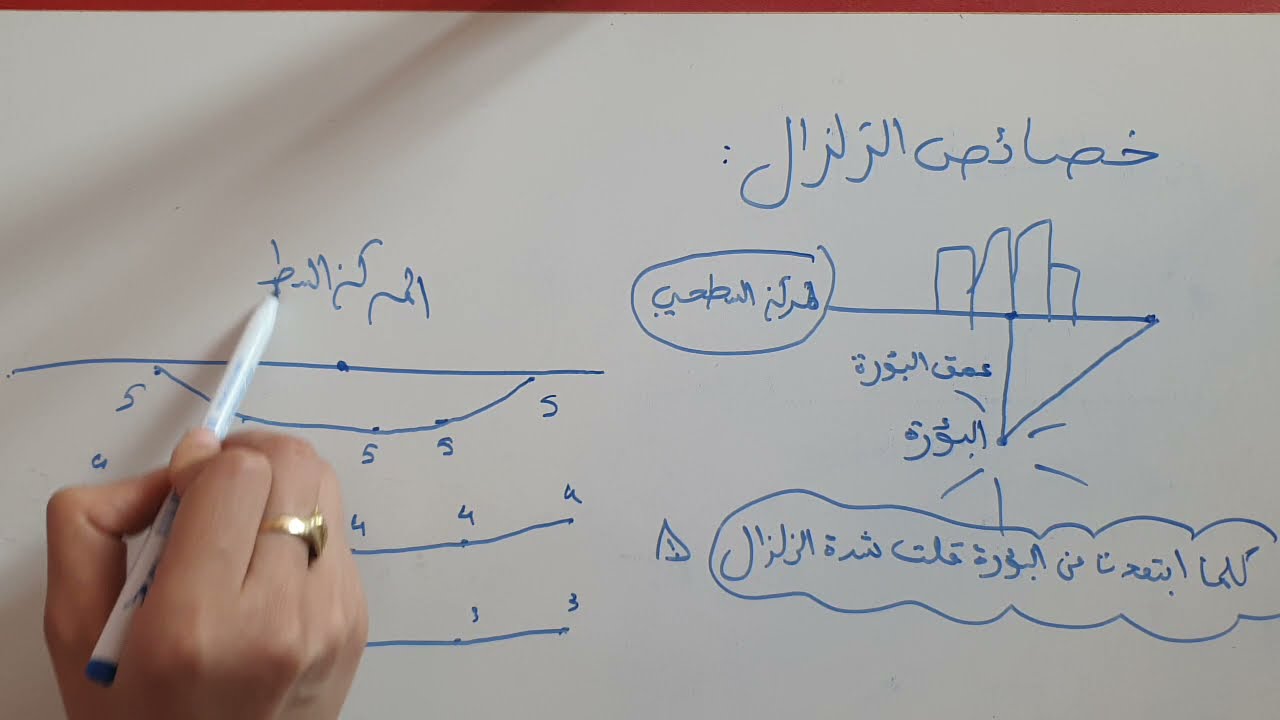 خصائص الزلزال :
المركز السطحي
عمق البؤرة
البؤرة
كلما ابتعدنا من البؤرة قلت شدة الزلزال
المركز السط
5 5 5 5
4 4 4 4
3 3